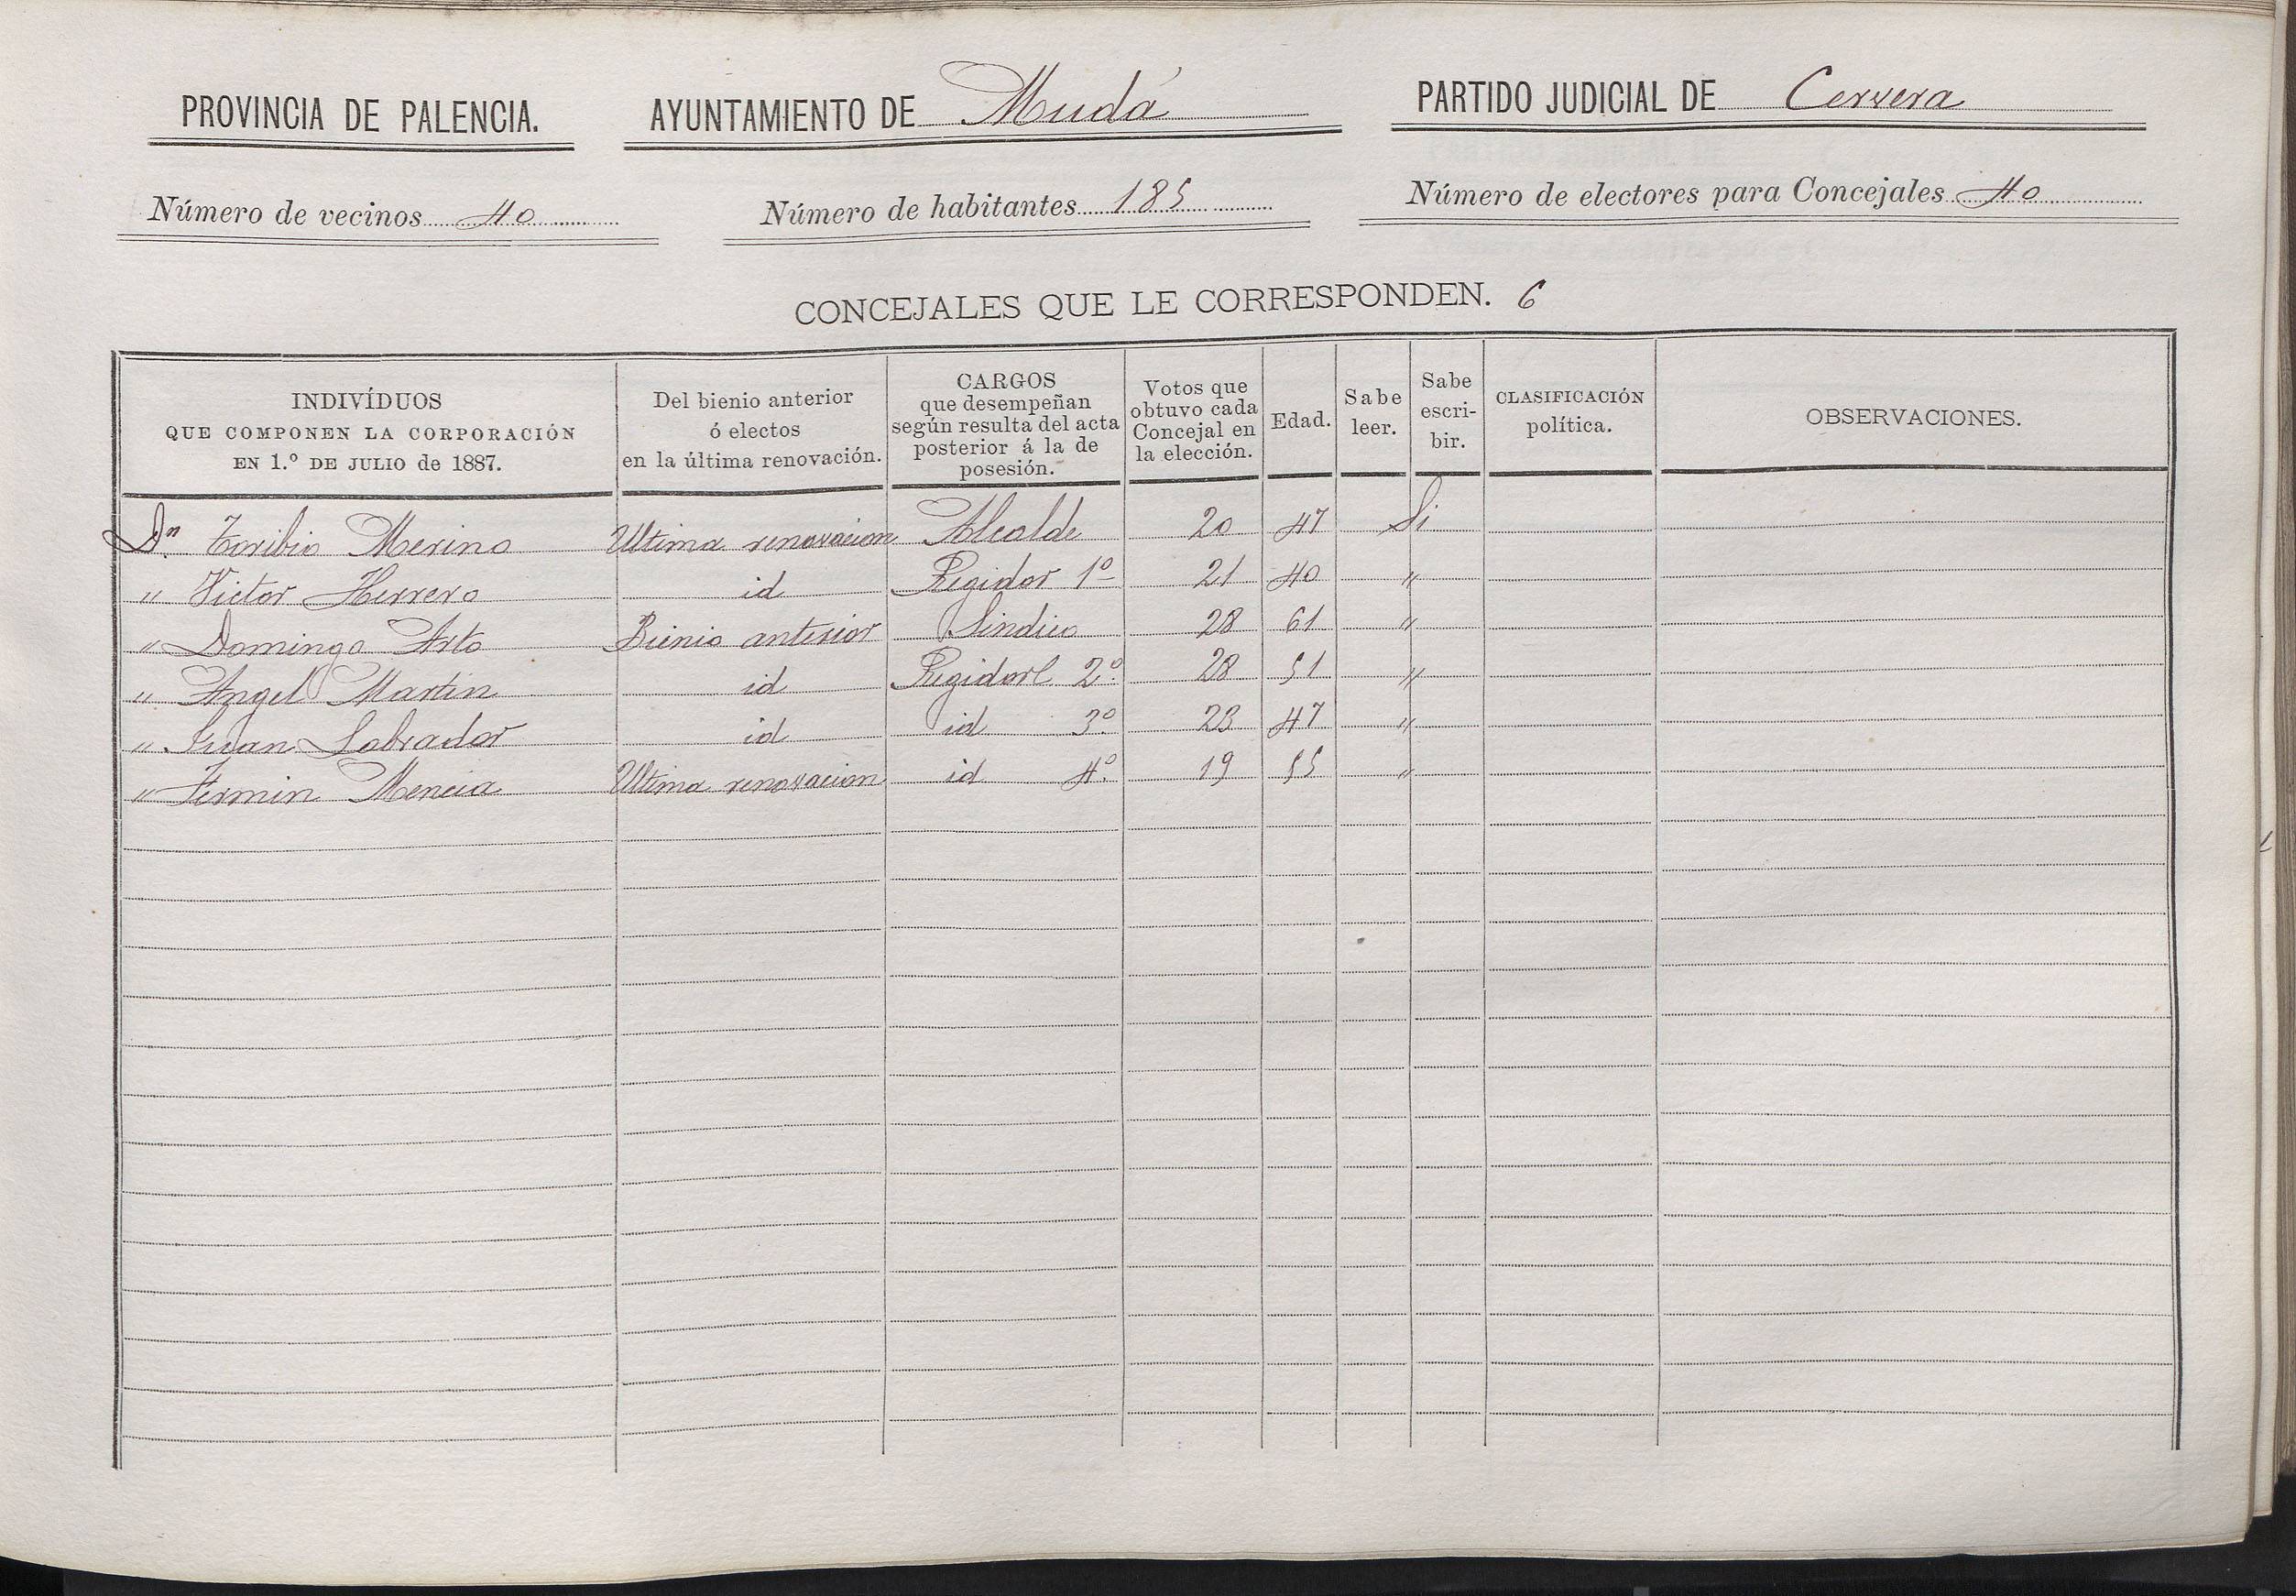 PROVINCIA DE PALENCIA. AYUNTAMIENTO DE Mudá PARTIDO JUDICIAL DE Cervera
Número de vecinos 40 Número de habitantes 185 Número de electores para Concejales 40
CONCEJALES QUE LE CORRESPONDEN. 6
INDIVÍDUOS
QUE COMPONEN LA CORPORACIÓN
EN 1.º DE JULIO de 1887.
Del bienio anterior
ó electos
en la última renovación.
CARGOS
que desempeñan
según resulta del acta
posterior á la de
posesión.
Votos que
obtuvo cada
Concejal en
la elección.
Edad.
Sabe
leer.
Sabe
escri-
bir.
CLASIFICACIÓN
política.
OBSERVACIONES.
Dn. Toribio Merino Ultima renovacion Alcalde 20 47 Si
" Victor Herrero id Regidor 1º 21 40 "
" Domingo Arto Bienio anterior Sindico 28 61 "
" Angel Martin id Regidor 2º. 28 51 "
" Juan Labrador id id 3º. 23 47 "
" Fermin Mencia Ultima renovacion id 4º. 19 55 "